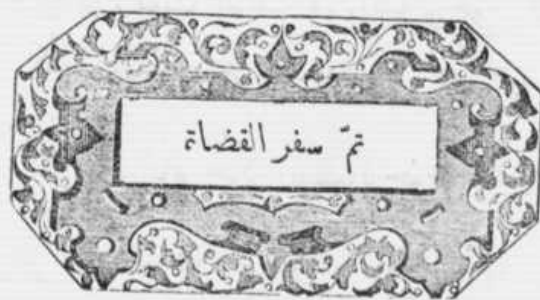 تمّ سفر القضاة